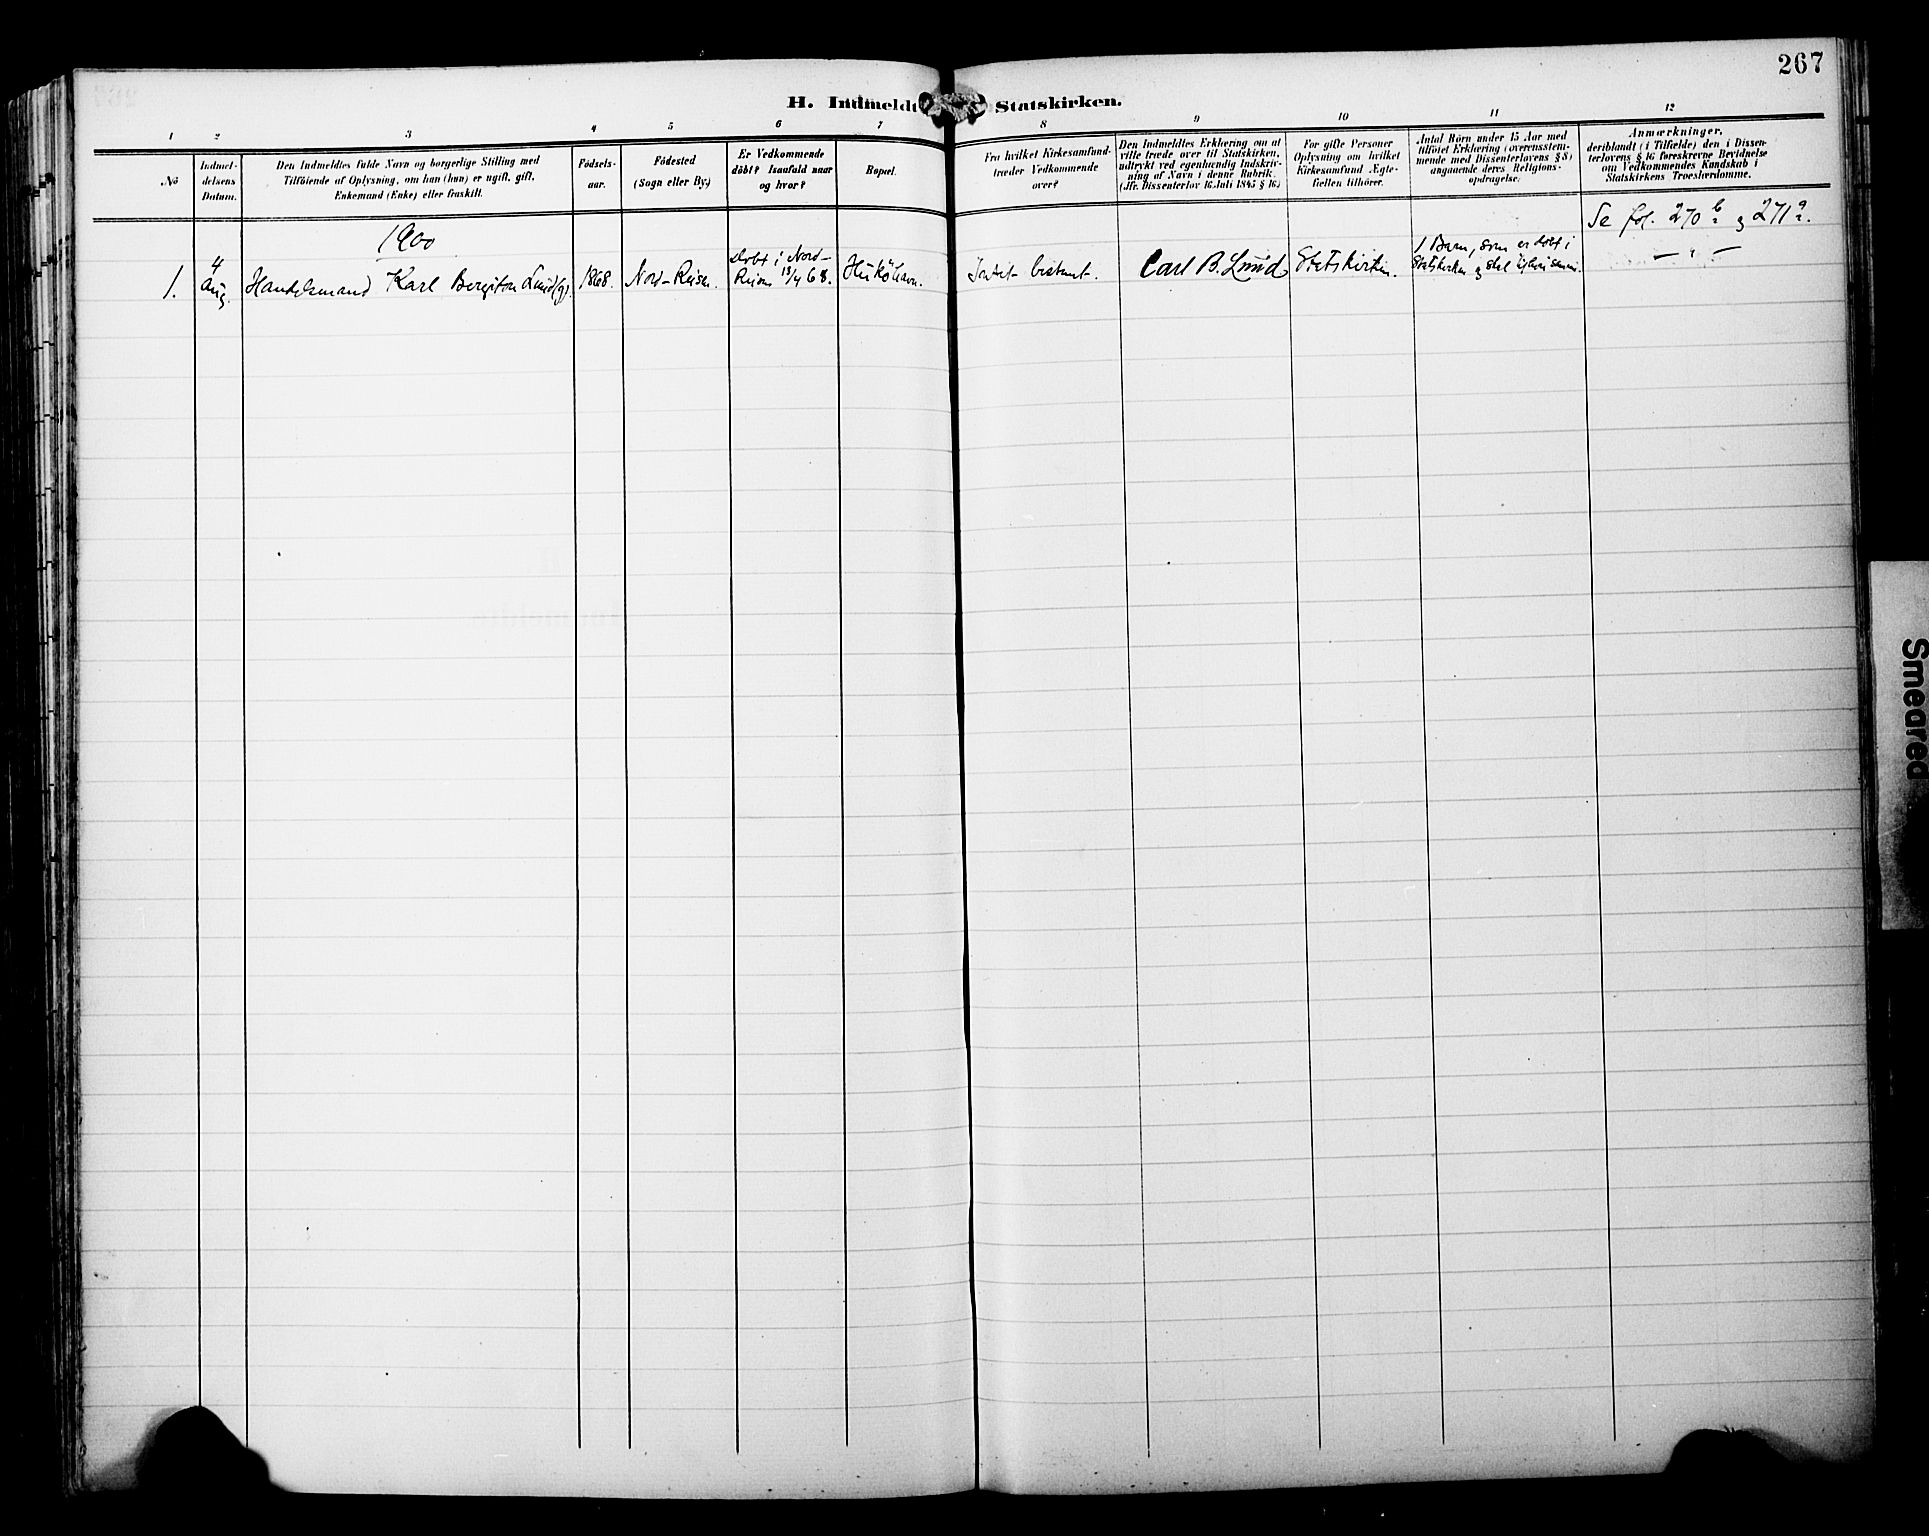 267
H. Indmeldt Statskirken.
1 2 3 4 5 6 7 8 9 10 11 12
No
Indmel-
delsens
Datum.
Den Indmeldtes fulde Navn og borgerlige Stilling med
Tilföiende af Oplysning, om han (hun) er ugift, gift,
Enkemand (Enke) eller fraskilt.
Födsels-
aar.
Födested
(Sogn eller By.)
Er Vedkommende
döbt? Isaafald naar
og hvor?
Bopæl.
Fra hvilket Kirkesamfund
træder Vedkommende
over?
Den Indmeldtes Erklæring om at
ville træde over til Statskirken,
udtrykt ved egenhændig Indskriv-
ning af Navn i denne Rubrik.
(Jfr. Dissenterlov 16 Juli 1845 § 16.)
For gifte Personer
Oplysning om hvilket
Kirkesamfund Ægte-
fællen tilhörer.
Antal Börn under 15 Aar med
tilföiet Erklæring (overensstem-
mende med Dissenterlovens § 8)
angaaende deres Religions-
opdragelse.
Anmærkninger,
deriblandt (i Tilfælde) den i Dissen-
terlovens § 16 foreskrevne Bevidnelse
om Vedkommendes Kundskab i
Statskirkens Troeslærdomme.
Se fol. 270 b og 271 a.
1900
1.
4
Aug.
Handelsmand Karl Bergiton Lund (g).
1868.
Nord-Reisen.
Döbt i Nord-
Reisen 13/4 68.
havn.
Intet bestemt.
Carl B. Lund
Statskirken.
1 Barn, som er döbt i
Statskirken og skal
— " —
Smeared